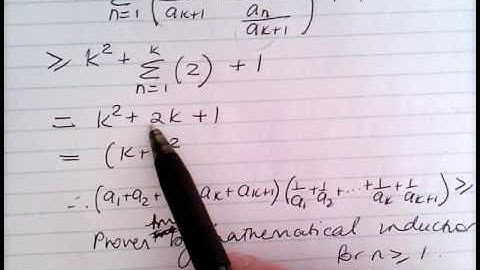 ∑ n=1 ( / a_{k+1} a_n / a_{k+1} )
≥ k² + ∑_{n=1}^{k} (2) + 1
= k² + 2k + 1
= (k+ ²
∴ (a₁+a₂+ a_k+a_{k+1}) (1/a₁ + 1/a₂ + ... + 1/a_k + 1/a_{k+1}) ≥
Proven by mathematical induction
for n ≥ 1.